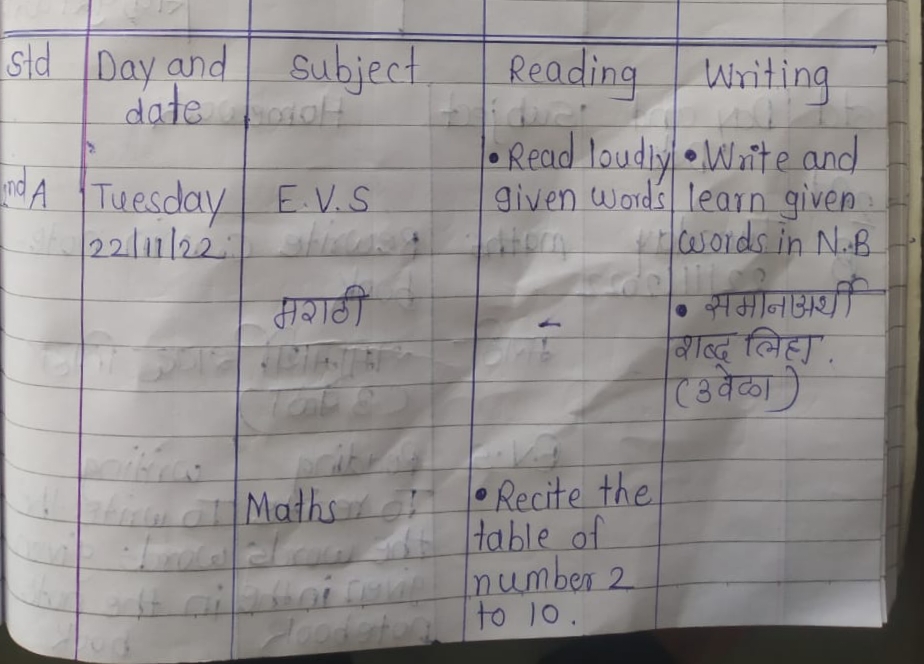 Std Day and date Subject Reading Writing
nd A Tuesday 22/11/22
E.V.S
• Read loudly
given words
• Write and
learn given
words in N.B
मराठी
-
• समानअर्थी
शब्द लिहा.
(3वेळा)
Maths
• Recite the
table of
number 2
to 10.